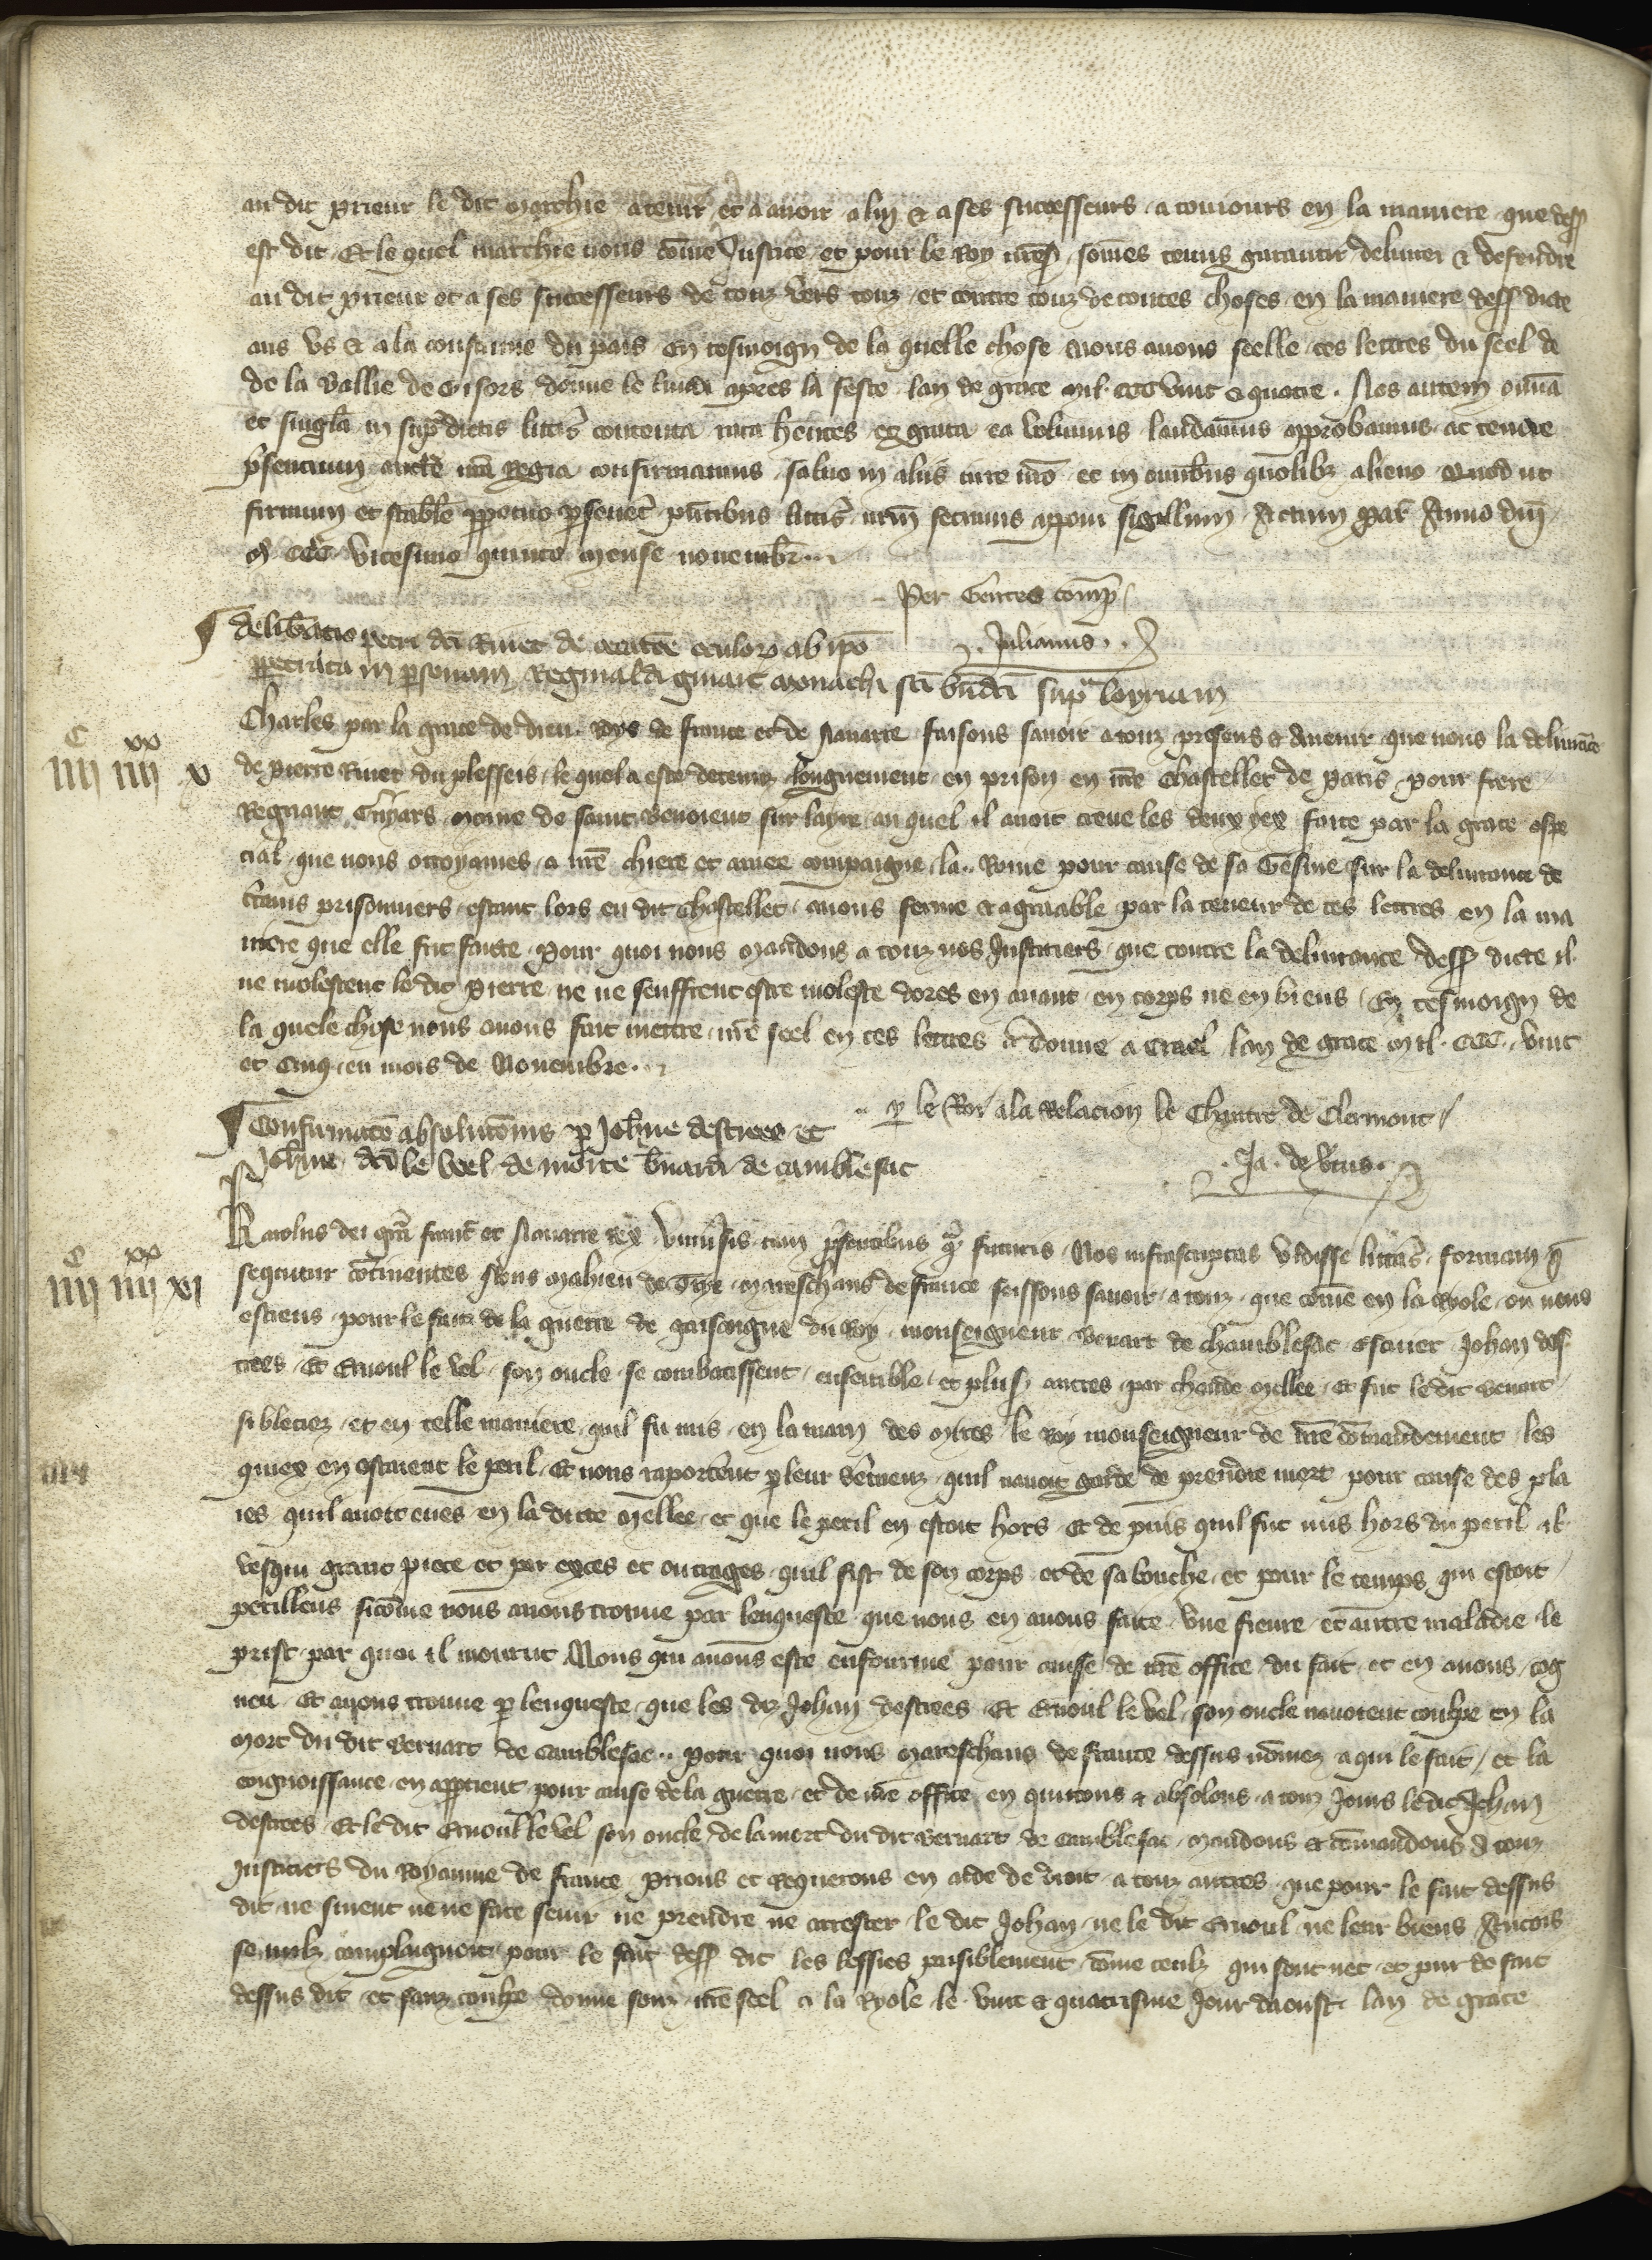 au dit prieur le dit marchie a tenir et a avoir a luy & a ses successeurs a touiours en la maniere que dess
est dit Et le quel marchie nous come Justice et pour le Roy nre s somes tenus garantir delivrer & defendre
au dit prieur et a ses successeurs de touz vers touz et contre touz de toutes choses en la maniere dess dicte
aus us & a la coustume du pais En tesmoign de la quelle chose nous avons seelle ces lettres du seel de
de la Ballie de Gisors donne le lundi apres la feste lan de grace mil CCC vint & quatre. Nos autem omnia
et singla in sup dictis littis contenta rata hentes & grata ea volumus laudamus approbamus ac tenore
psentium aucte nra Regia confirmamus salvo in aliis iure nro et in omnibus quolibz alieno Quod ut
firmum et stabile ppetuo psevet pntibus littis nrm fecimus apponi sigillum Actum Par Anno dni
M CCC vicesimo quinto mense novembr
Per Gentes comp
Julianus
Delibatio petri dci Rivet de cecitate oculor ab ipo
ppetrata in psonam Reginaldi guiart monachi sci bndci sup loyriam
C xx
IIII IIII X
Charles par la grace de dieu Roys de france et de Navarre faisons savoir a touz presens & avenir que nous la delivrace
de pierre Rivet du plesseis le quel a este detenuz longuement en prison en nre Chastellet de Paris pour frere
Regnaut Guyars moine de saint Benoieut sur layre au quel il avoit creve les deux yex faite par la grace espe
cial que nous ottroyames a nre chiere et amee compaigne la Roine pour cause de sa Gesine sur la delivrance de
ctains prisonniers estant lors en dit chastellet avons ferme & agreable par la teneur de ces lettres en la ma
niere que elle fut faite pour quoi nous mandons a touz nos Justiciers que contre la delivrance dess dicte il
ne molestent le dit Pierre ne ne seuffrent estre moleste dores en avant en corps ne en biens En tesmoign de
la quele chose nous avons fait mettre nre seel en ces lettres donne a Crael lan de grace mil CCC vint
et cinq en mois de Novembre
p le Roy a la Relacion le Chantre de Clermont
Ja de Vtus
Confirmatio absolutionis p Johne destrees et
Johne dco le Veel de morte bnardi de camblesac
C xx
IIII IIII XI
Karolus dei gra franc et Navarre Rex Univsis tam psentibus q futuris Nos infrascriptas vidisse littas formam q
sequitur continentes Nous Mahieu de Trye mareschaus de france feissons savoir a touz que come en la Ryole ou nous
estiens pour le fait de la guerre de gascoigne du Roy monseigneur Bernart de chamblesac escuier Johan des
trees Et Ernoul le Vel son oncle se combatissent ensemble et plus autres par chaude mellee Et fut le dit Bernart
si bleciez et en telle maniere quil fu mis en la main des mires le Roy monseigneur de nre comandement les
quiex en osterent le peril Et nous raporterent p leur sermenz quil navoit garde de prendre mort pour cause des pla
ies quil avoit eues en la dicte mellee et que le peril en estoit hors Et de puis quil fut mis hors du peril il
vesqui grant piece et par exces et outrages quil fist de son corps et de sa bouche et pour le temps qui estoit
perilleus sicome nous avons trouve par lenqueste que nous en avons faite une fievre et autre maladie le
prist par quoi il mourut Nous qui avons este enfourme pour cause de nre office du fait et en avons cog
neu Et avons trouve p lenqueste que les diz Johan destrees Et Ernoul le Vel son oncle navoient coulpe en la
mort du dit Bernart de Camblesac pour quoi nous mareschaus de france dessus nomez a qui le fait et la
cognoissance en apptient pour cause de la guerre et de nre office en quitons & absolons a touz Jours le dit Johan
destrees Et le dit Ernoul le Vel son oncle de la mort du dit Bernart de Camblesac mandons & comandons a touz
Justiciers du Royaume de france prions et Requerons en aide de droit a touz autres que pour le fait dessus
dit ne sivent ne ne face sevir ne prendre ne arrester le dit Johan ne le dit Ernoul ne leur biens Ancois
se nulz complaignoit pour le fait dess dit les lessies paisiblement come ceulz qui sont net et pur de fait
dessus dit et sanz coulpe donne souz nre seel a la Ryole le vint & quatrisme Jour daoust lan de grace